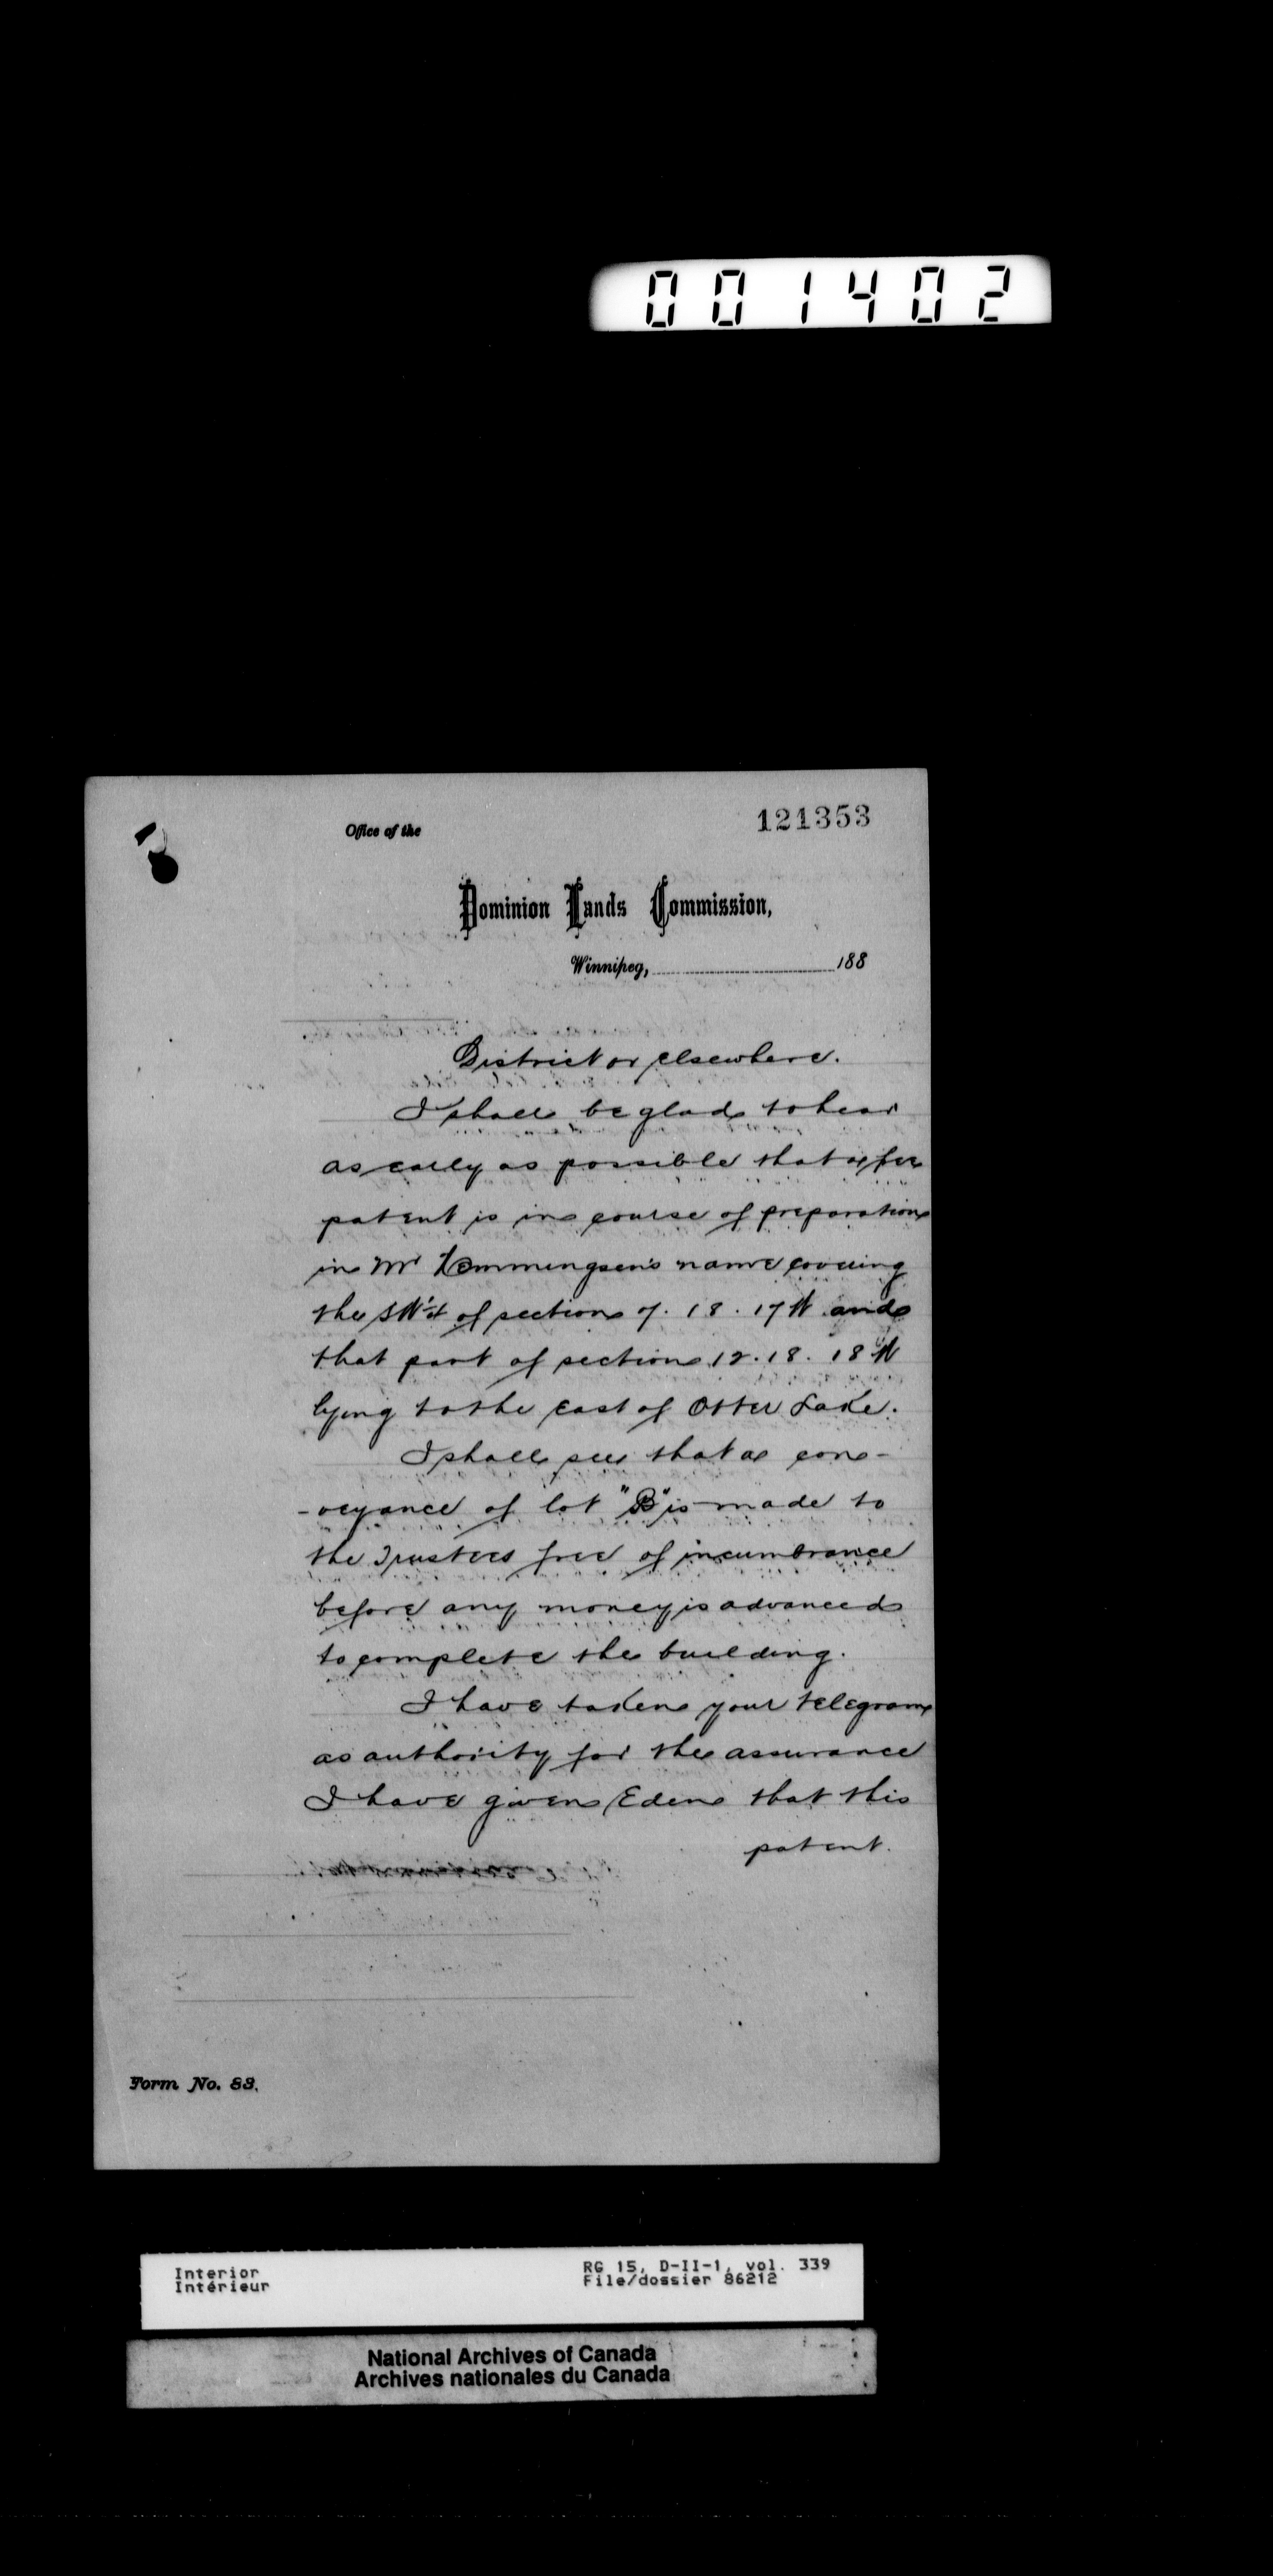 001402
121353
Office of the
Dominion Lands Commission,
Winnipeg, 188
District or elsewhere.
I shall be glad to hear
as early as possible that a
patent is in course of preparation
in Mr Hemmingsen's name covering
the SW¼ of section 7. 18. 17 W and
that part of section 12. 18. 18 W
lying to the east of Otter Lake.
I shall see that a con-
-veyance of lot "B" is made to
the Trustees free of incumbrance
before any money is advanced
to complete the building.
I have taken your telegram
as authority for the assurance
I have given Eden that this
patent.
Form No. 83.
Interior RG 15, D-II-1, vol. 339
Intérieur File/dossier 86212
National Archives of Canada
Archives nationales du Canada